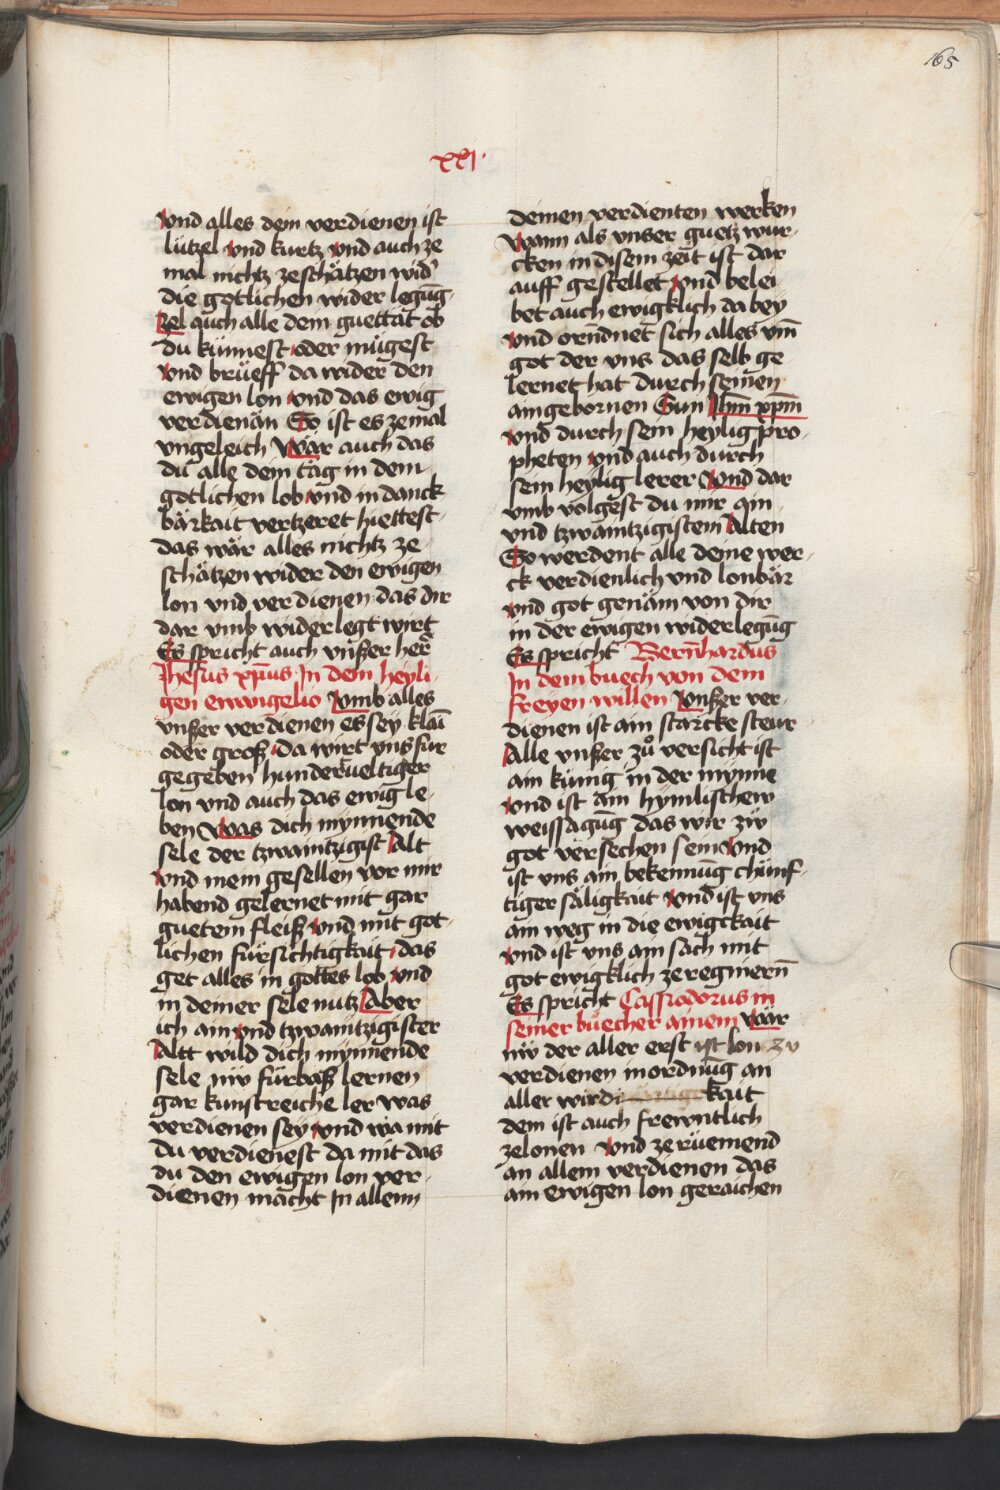 165
xxj·
Vnd alles dein verdienen ist
lützel vnd kurtz vnd auch ze
mal nichtz ze schätzen wid'
die götlichen wider legūg
Zel auch alle dein guettät ob
du künnest oder mügest
Vnd brüeff da wider den
ewigen lon vnd das ewig
verdienän So ist es ze mal
vngeleich Wär auch das
du alle dein täg in dem
gotlichen lob vnd in danck
bärkait vertzeret hiettest
das wär alles nichtz ze
schätzen wider den ewigen
lon vnd verdienen das dir
dar vmb widerlegt wirt
Es spricht auch vnßer her
Jhesus xp̄us In dem heyli
gen ewvngelio Vmb alles
vnßer verdienen es sey klaī
oder groß da wirt vns für
gegeben hundertveltiger
lon vnd auch das ewig le
ben Was dich mynnende
sele der tzwaintzigist Alt
Vnd mein gesellen vor mir
habend gelernet mit gar
guetem fleiß vnd mit got
lichen fürsichtigkait das
get alles in gottes lob vnd
in deiner sele nutz Aber
ich ain vnd tzwaintzigister
Altt wild dich mynnende
sele nw̄ fürbaß lernen
gar kunstreiche ler was
verdienen sey vnd wa mit
du verdienest da mit das
du den ewigen lon ver
dienen macht In allenn
deinen verdienten werken
Wann als vnser guetz wur
cken in disem zeit ist dar
auff gestellet vnd belei
bet auch ewigklich da bey
Vnd orndnet sich alles vm̄
got der vns das selb ge
lernet hat durch seinen
aingebornen Sun Jhm̄ xp̄m
Vnd durch sein heylig pro
pheten vnd auch durch
sein heylig lerer Vnd dar
vmb volgest du mir ain
vnd tzwaintzigistem Alten
So werdent alle deine wer
ck verdienlich vnd lonbär
Vnd got genäm von dir
in der ewigen widerlegūg
Es spricht Bern̄hardus
In dem buech von dem
freyen willen Vnßer ver
dienen ist ain starcke steur
Alle vnßer zů versicht ist
ain künig in der mynne
Vnd ist ain hymlischew
weissagūg das wir zw̄
got versechen sein Vnd
ist vns ain bekennūg chünf
tiger säligkait Vnd ist vns
ain weg in die ewigckait
Vnd ist vns ain sach mit
got ewigklich ze regniern̄
Es spricht Cassiadorus in
seiner büecher ainem Wär
nw̄ der aller erst ist lon zu
verdienen in ordnūg an
aller wirdi kait
dem ist auch frewntlich
ze lonen Vnd ze rüemend
an allem verdienen das
ain ewigen lon geraichen